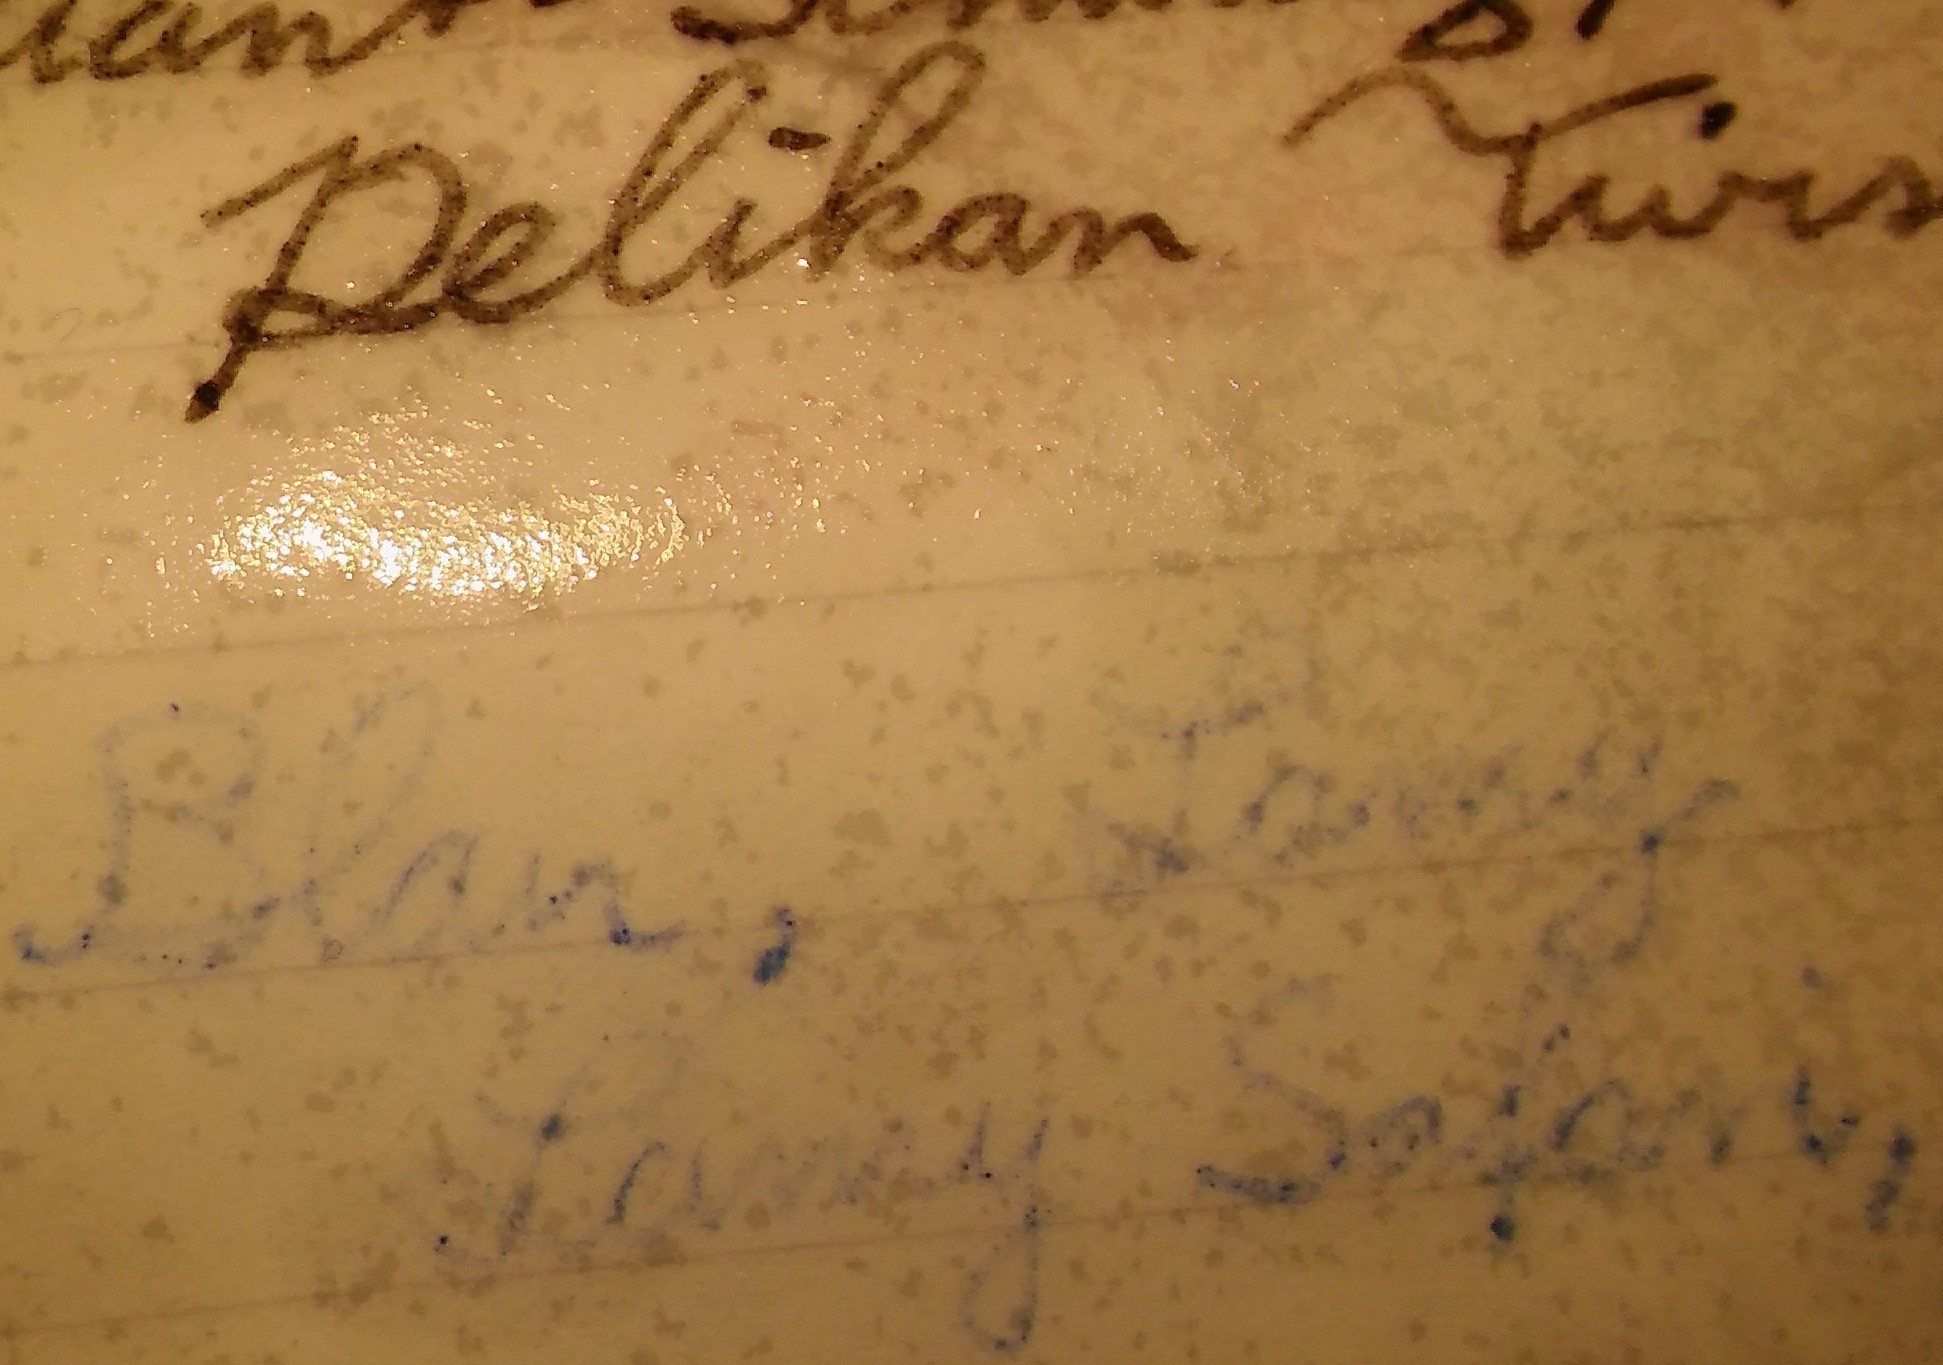 Pelikan Twis
Blau, Lamy
Lamy Safari,